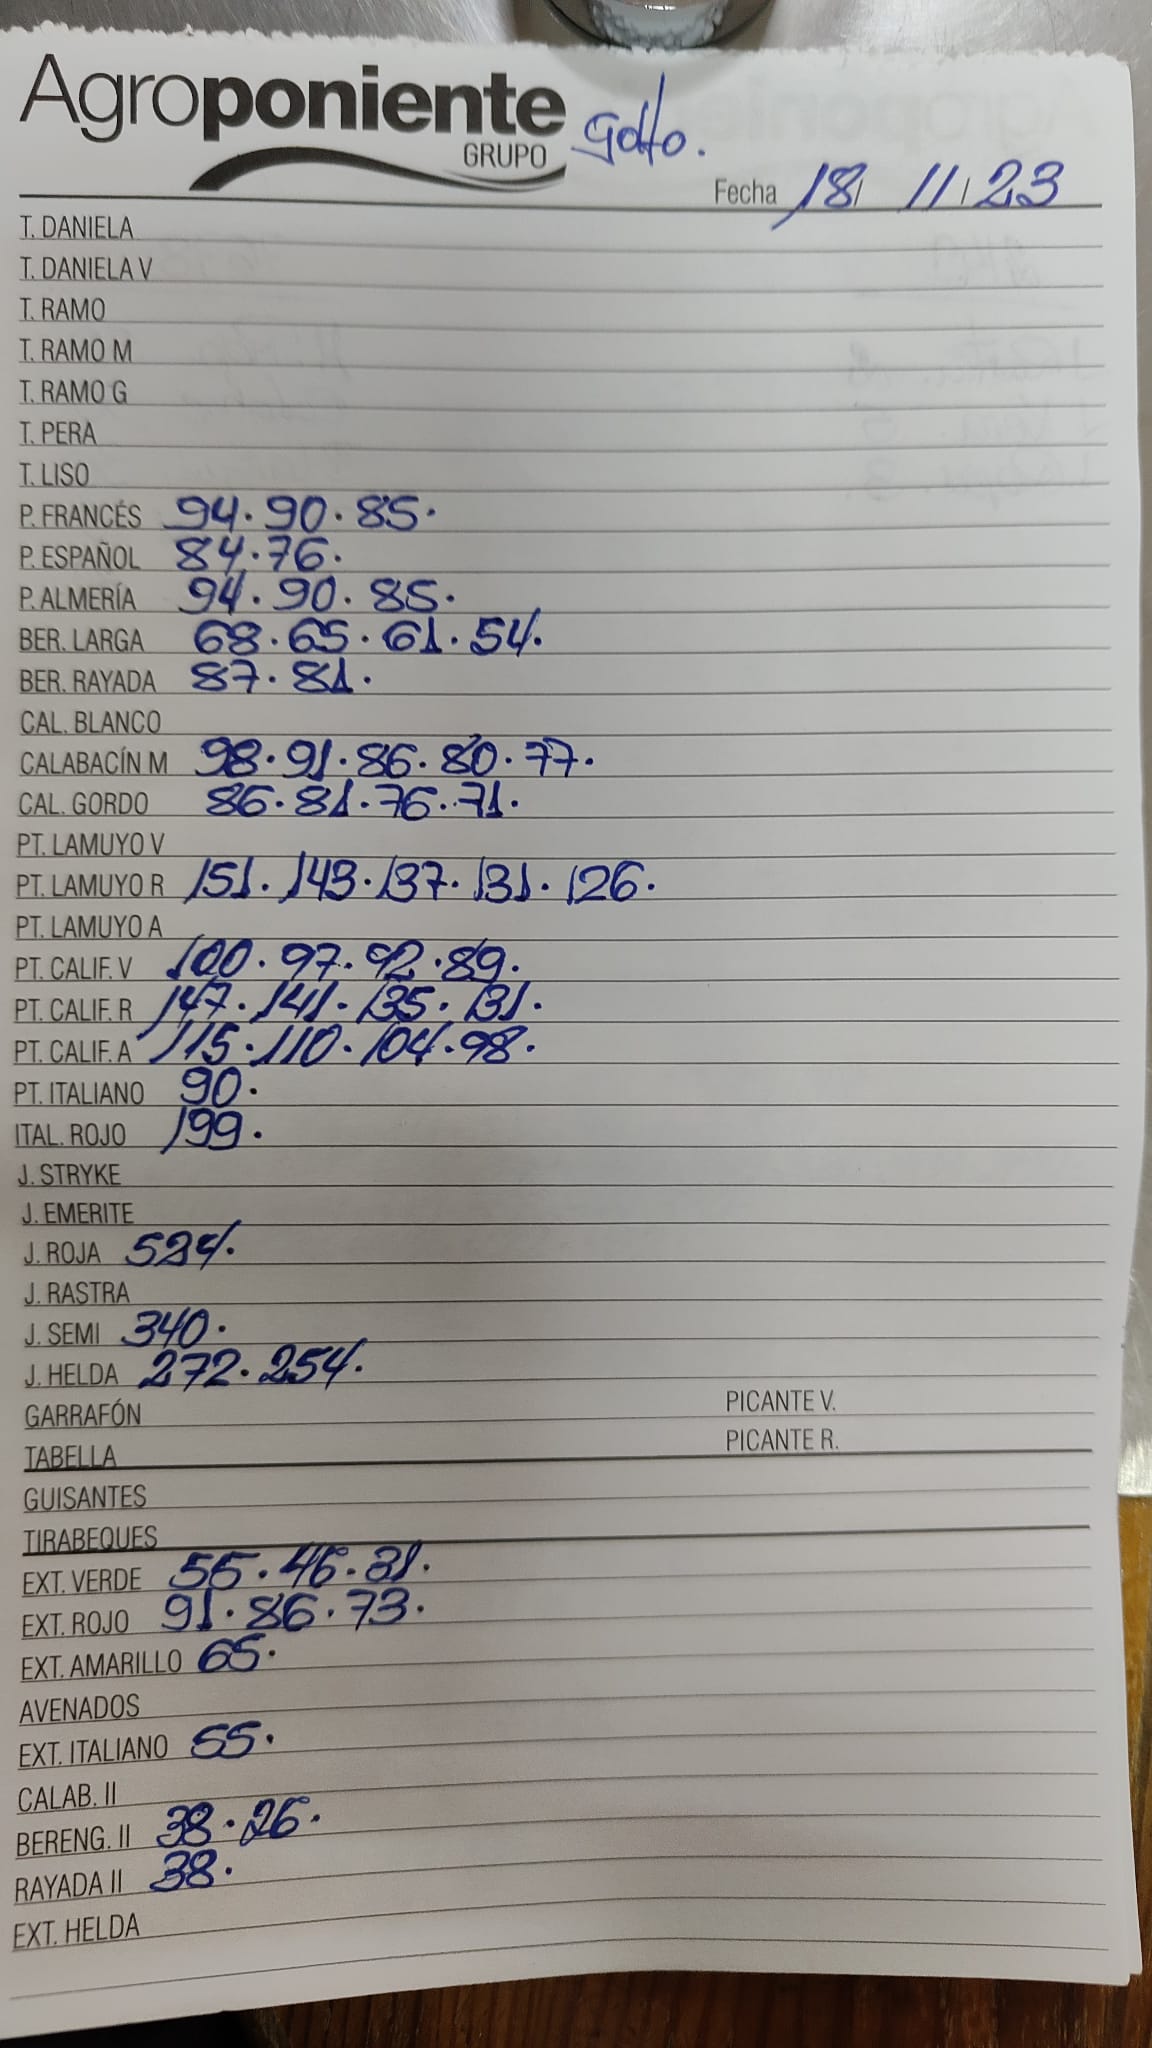 Agroponiente
GRUPO
Golfo.
Fecha 18/ 11/23
T. DANIELA
T. DANIELA V
T. RAMO
T. RAMO M
T. RAMO G
T. PERA
T. LISO
P. FRANCÉS 94. 90. 85.
P. ESPAÑOL 84. 76.
P. ALMERÍA 94. 90. 85.
BER. LARGA 68. 65. 61. 54.
BER. RAYADA 87. 81.
CAL. BLANCO
CALABACÍN M 98. 91. 86. 80. 77.
CAL. GORDO 86. 81. 76. 71.
PT. LAMUYO V
PT. LAMUYO R 151. 143. 137. 131. 126.
PT. LAMUYO A
PT. CALIF. V 100. 97. 92. 89.
PT. CALIF. R 147. 141. 135. 131.
PT. CALIF. A 115. 110. 104. 98.
PT. ITALIANO 90.
ITAL. ROJO 199.
J. STRYKE
J. EMERITE
J. ROJA 524.
J. RASTRA
J. SEMI 340.
J. HELDA 272. 254.
GARRAFÓN PICANTE V.
TABELLA PICANTE R.
GUISANTES
TIRABEQUES
EXT. VERDE 55. 46. 31.
EXT. ROJO 91. 86. 73.
EXT. AMARILLO 65.
AVENADOS
EXT. ITALIANO 55.
CALAB. II
BERENG. II 38. 26.
RAYADA II 38.
EXT. HELDA